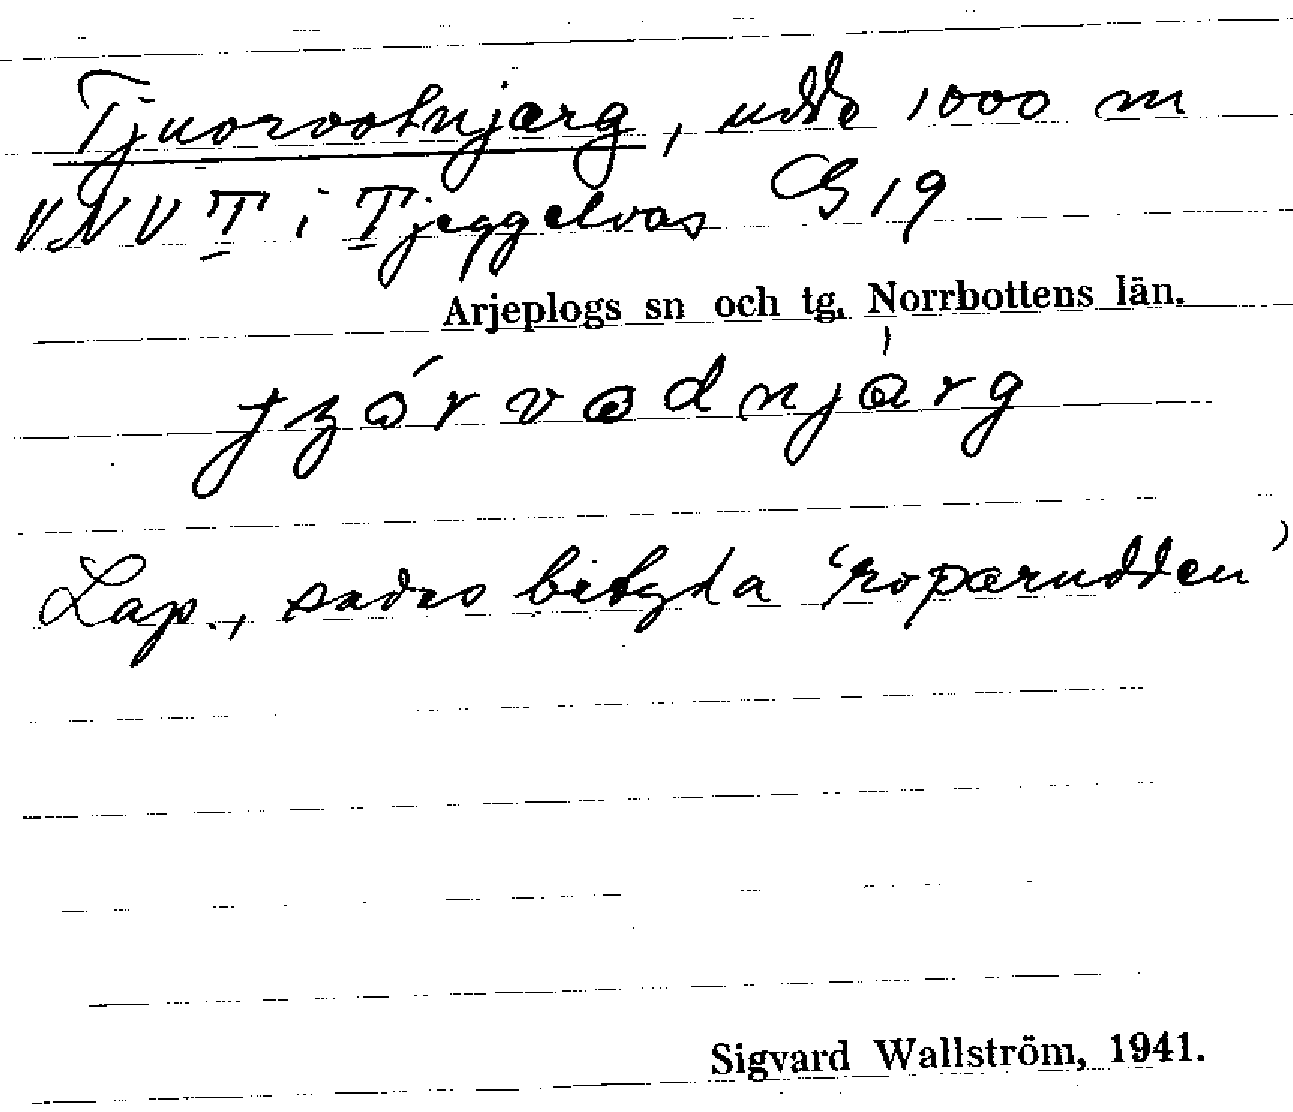 Tjuorvotnjarg, udde 1000 m
VNV T i Tjeggelvas G 19
Arjeplogs sn och tg. Norrbottens län.
Lap., sades betyda 'roparudden'
Sigvard Wallström, 1941.